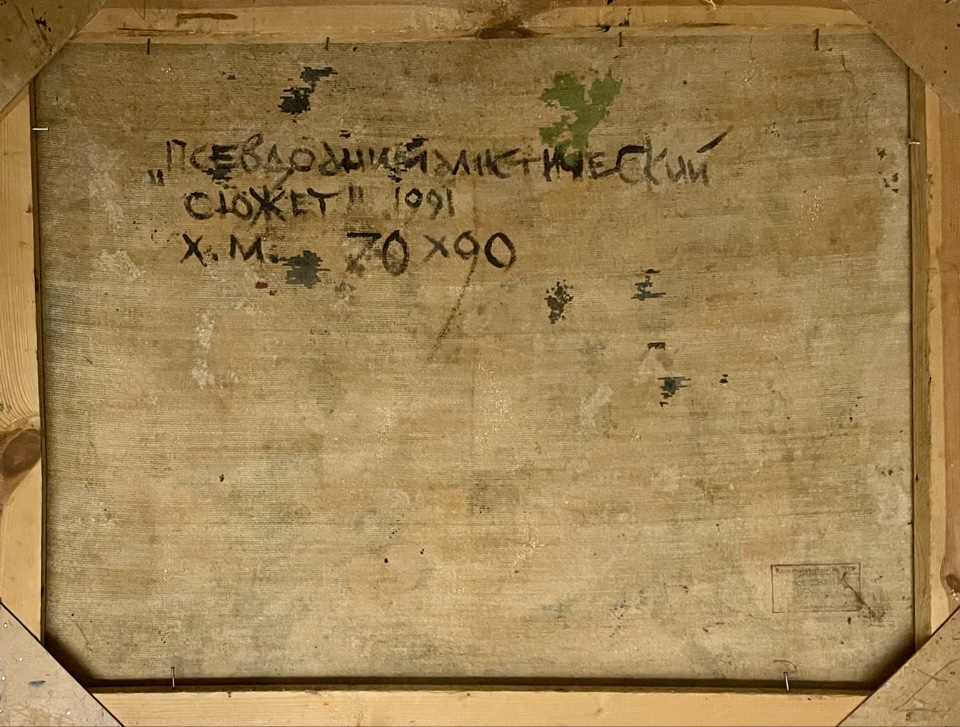 „ПСЕВДОАНИМАЛИСТИЧЕСКИЙ
СЮЖЕТ" 1991
Х.М. 70×90